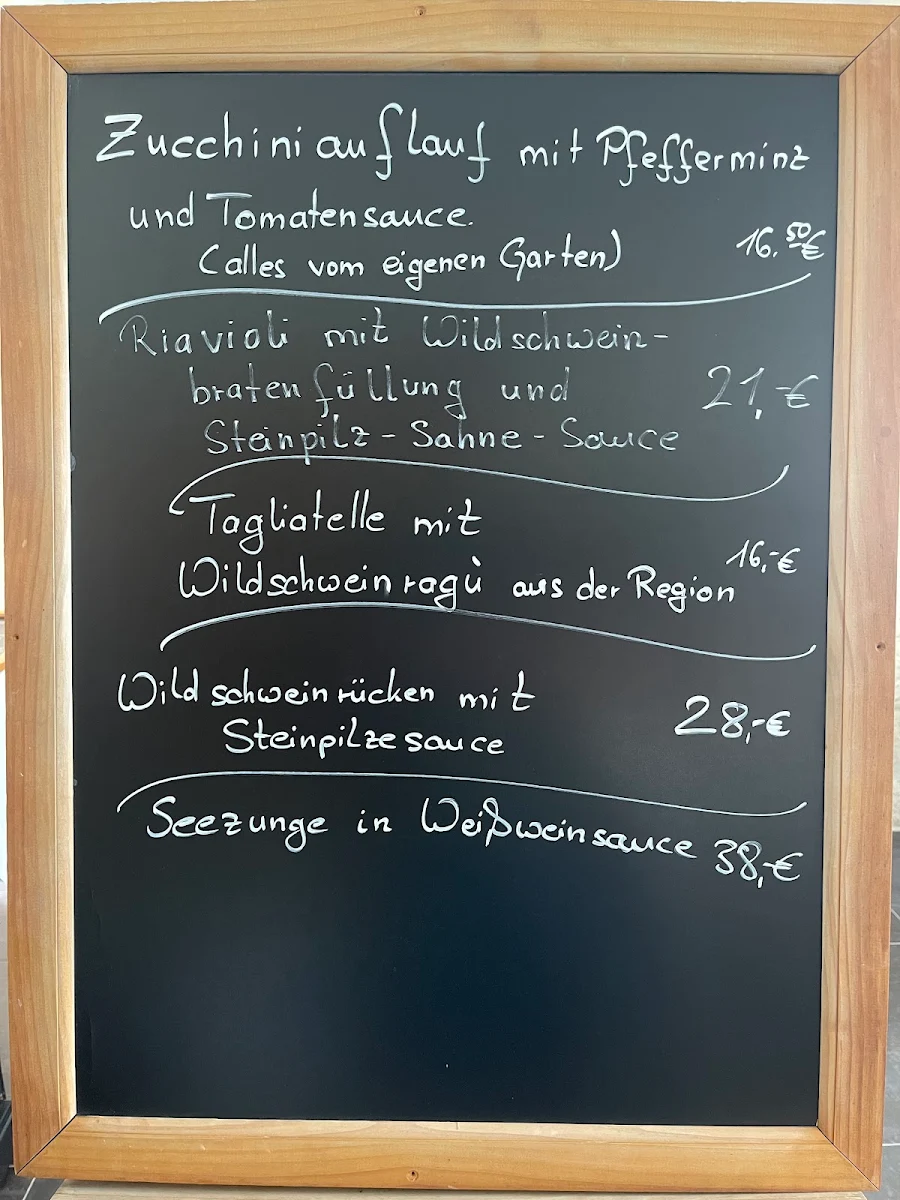 Zucchiniauflauf mit Pfefferminz
und Tomatensauce.
(alles vom eigenen Garten) 16.50€
Riavioli mit Wildschwein-
bratenfüllung und 21,-€
Steinpilz-Sahne-Sauce
Tagliatelle mit
16,-€
Wildschweinragù aus der Region
Wildschweinrücken mit
28,-€
Steinpilzesauce
Seezunge in Weißweinsauce 38,-€